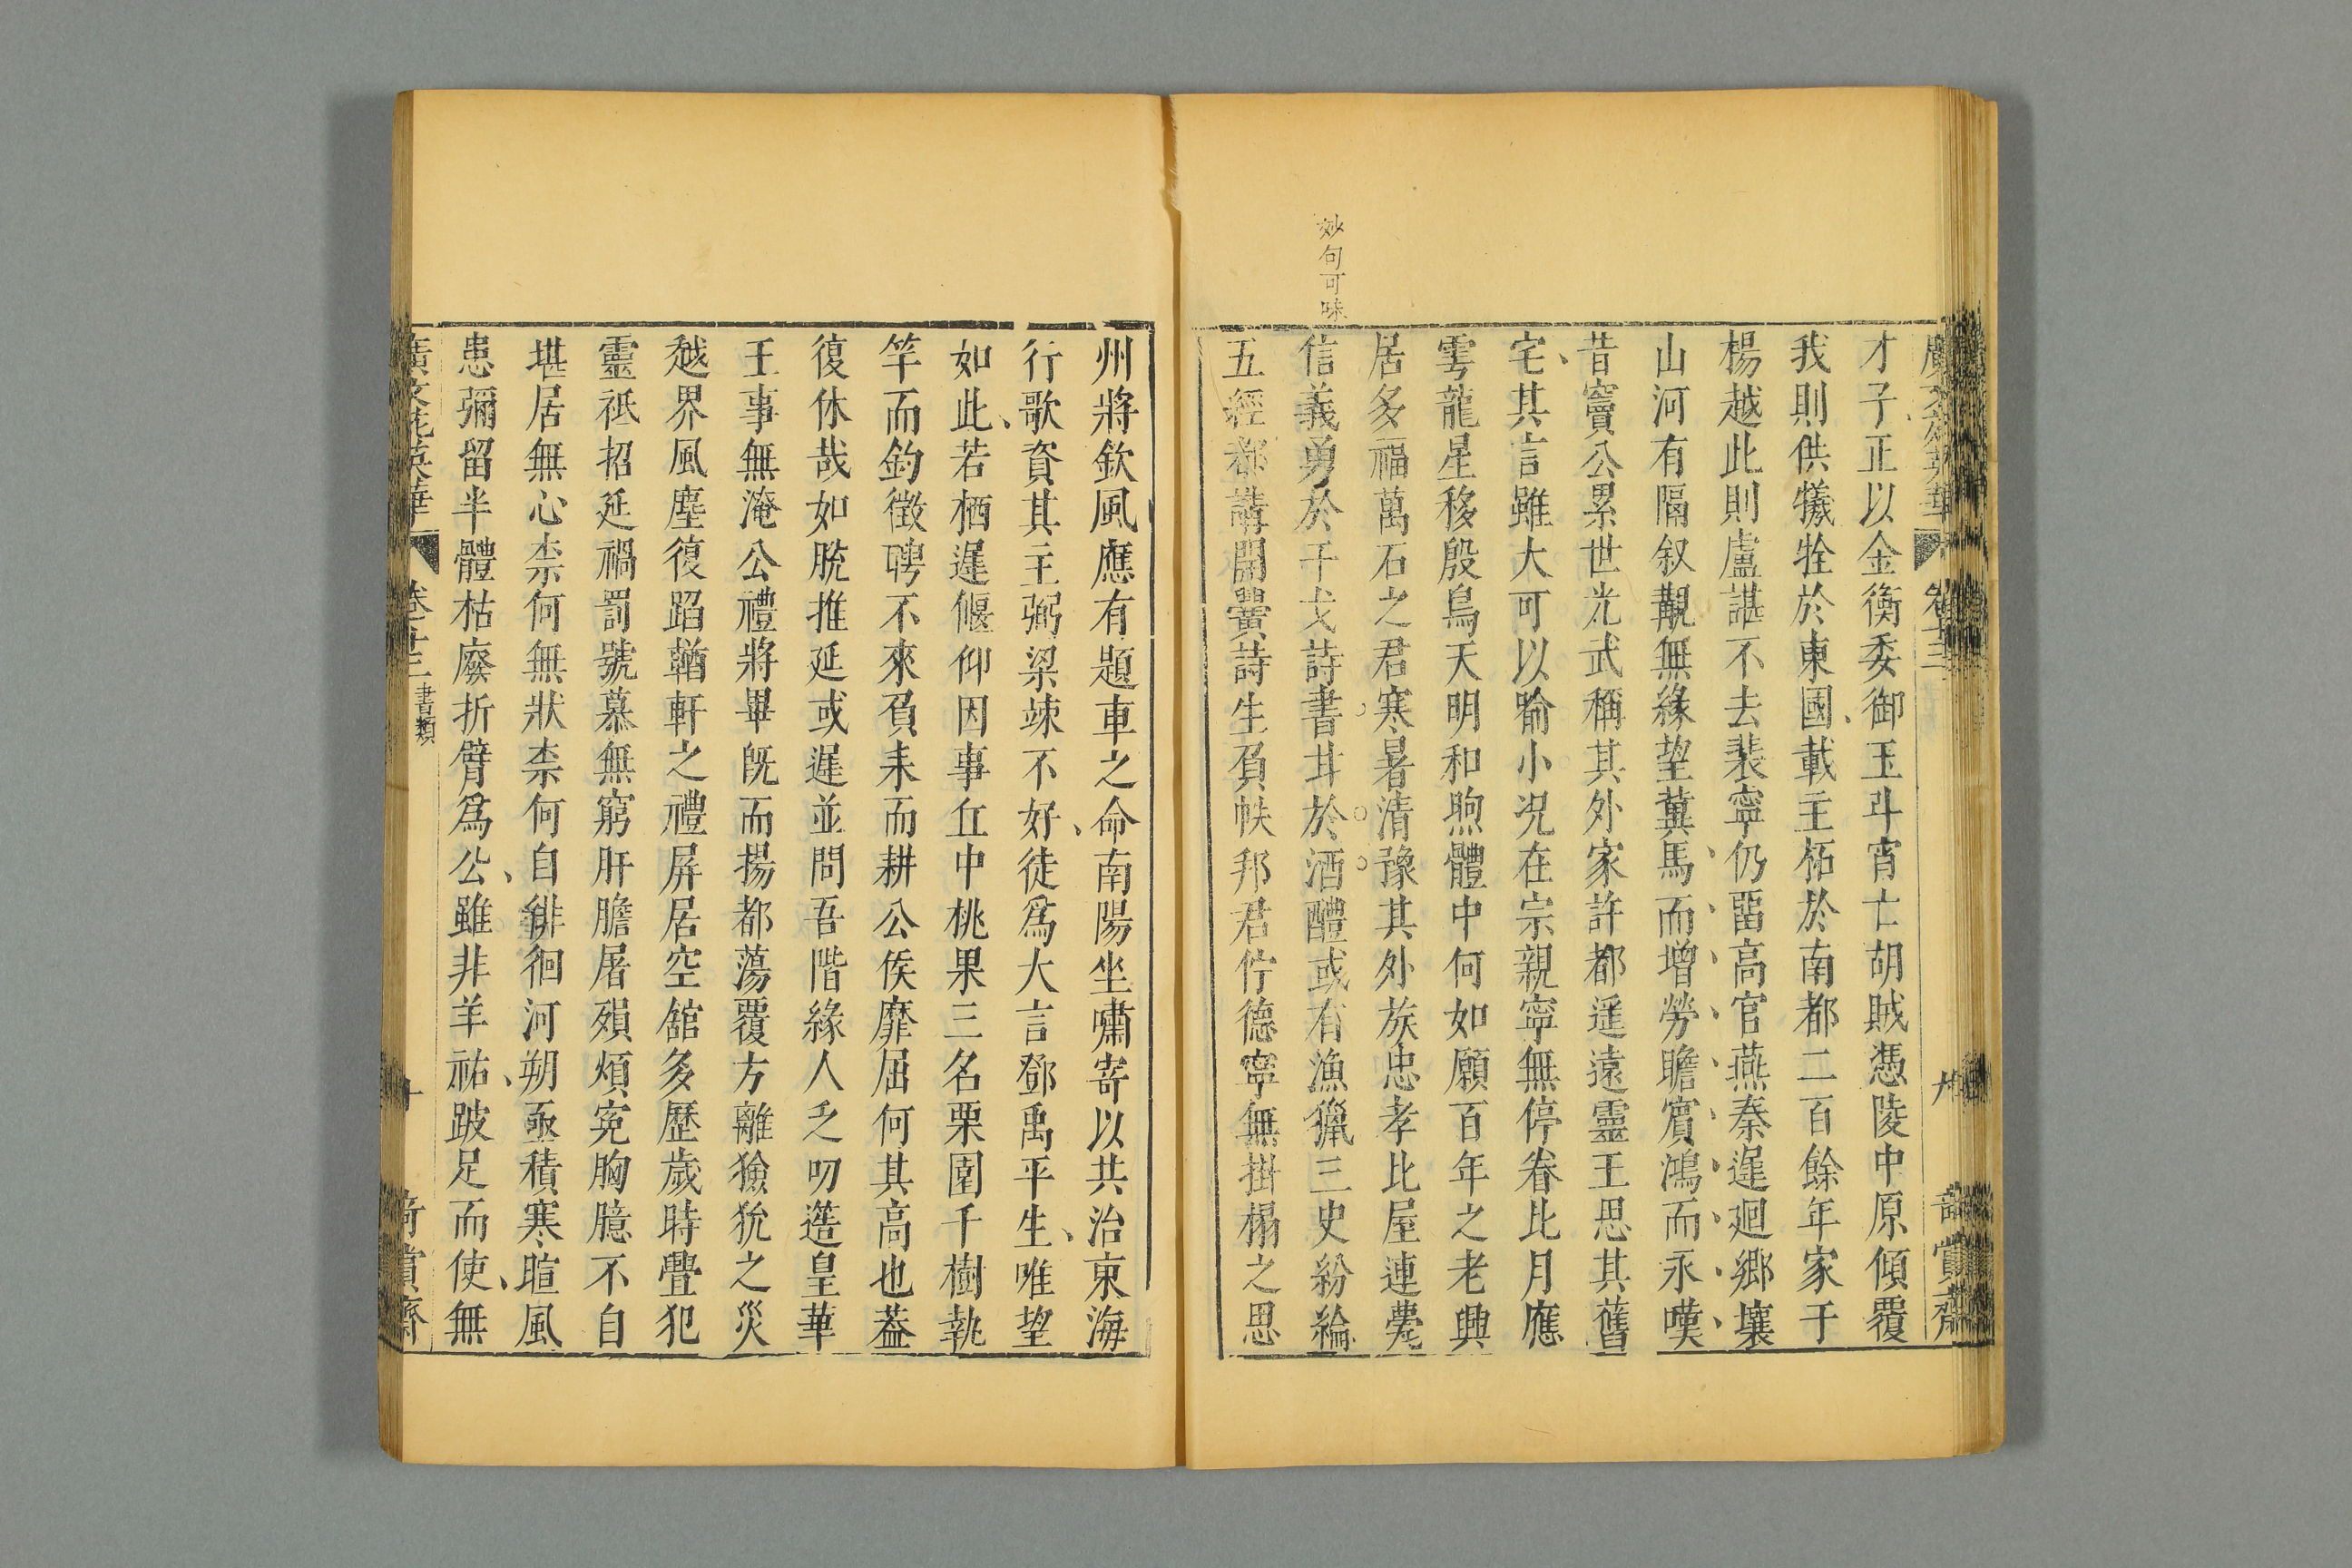 妙句可味
才子正以金衡委御玉斗宵亡胡賊憑陵中原傾覆
我則供犧牲於東國載主柘於南都二百餘年家于
楊越此則盧諶不去裴寧仍留高官燕秦遲迴鄉壤
山河有隔叙覯無緣望冀馬而增勞瞻賓鴻而永嘆
昔竇公累世光武稱其外家許都遥遠靈王思其舊
宅其言雖大可以喻小况在宗親寧無停眷比月應
雩龍星移殷鳥天明和煦體中何如願百年之老興
居多福萬石之君寒暑清豫其外族忠孝比屋連甍
信義勇於干戈詩書甘於酒醴或有漁獵三史紛綸
五經都講開黌詩生負帙邦君佇德寧無掛榻之恩
廣文苑英華 卷廿三 九 奇賞齋
州將欽風應有題車之命南陽坐嘯寄以共治東海
行歌資其主弼梁竦不好徒爲大言鄧禹平生唯望
如此若栖遲偃仰因事丘中桃果三名栗圍千樹執
竿而釣徵聘不來負耒而耕公侯靡屈何其高也葢
復休哉如脱推延或遲並問吾階緣人乏叨簉皇華
王事無淹公禮將畢旣而揚都蕩覆方離獫狁之災
越界風塵復蹈輶軒之禮屏居空舘多歷歲時疊犯
靈祇招延禍罰號慕無窮肝膽屠殞煩寃胸臆不自
堪居無心柰何無狀柰何自徘徊河朔亟積寒暄風
患彌留半體枯廢折臂爲公雖非羊祐跛足而使無
廣文苑英華 卷廿三 書類 十 奇賞齋